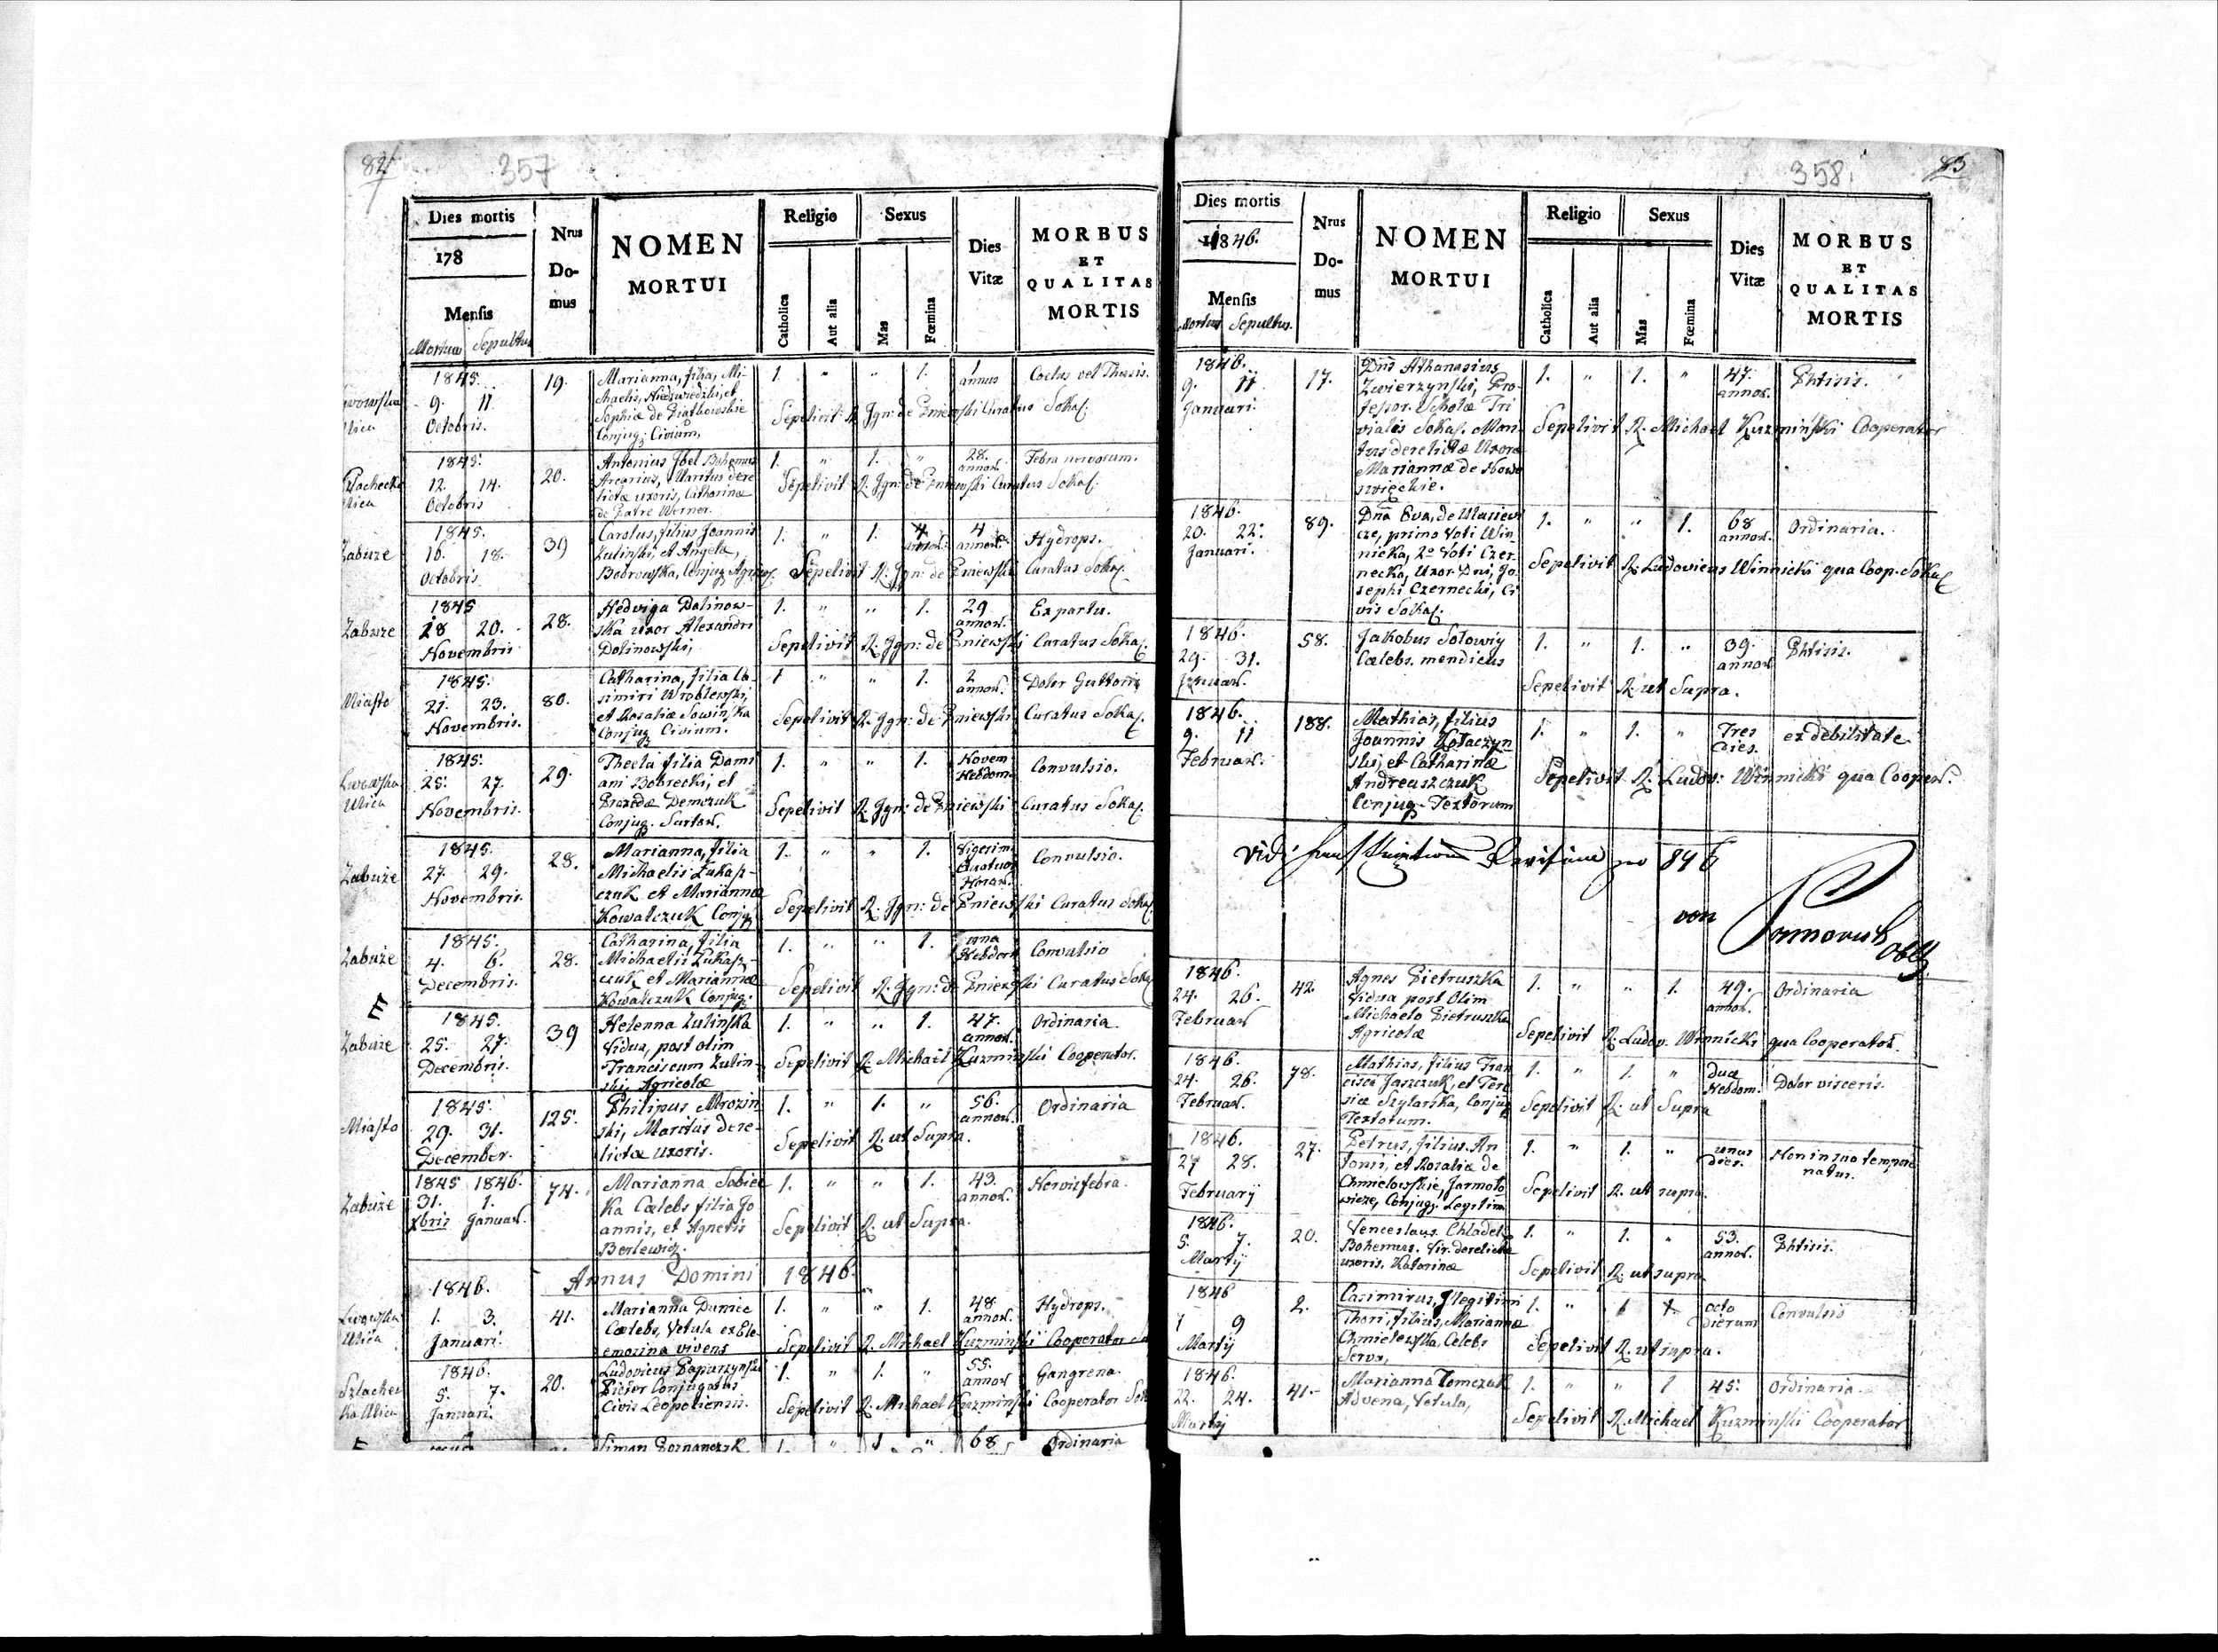 82
357
Dies mortis
178
Mensis
Mortuus Sepultus
Nrus
Do-
mus
NOMEN
MORTUI
Religio
Catholica
Aut alia
Sexus
Mas
Fœmina
Dies
Vitæ
MORBUS
ET
QUALITAS
MORTIS
1845.
9. 11.
Octobris.
19.
Marianna, filia, Mi-
chaelis, Niedzwiedzki, et
Sophiæ de Piątkowskie
Conjug: Civium,
1. " " 1.
1
annus
Coctus vel Thusis.
Sepelivit R. Ign: de Pniewski Curatus Sokal.
Ulica
1845.
12. 14.
Octobris
20.
Antonius Joel Bohemus
Arcarius, Maritus dere
lictæ uxoris, Catharinæ
de Patre Werner.
1. " 1. "
28.
annor.
Febra nervorum.
Sepelivit R. Ign: de Pniewski Curatus Sokal.
Zabuże
1845.
16. 18.
Octobris
39
Carolus, filius Joannis
Zulinski, et Angela,
Bobrowska, Conjug Agricol.
1. " 1.
4
annor.
Hydrops.
Sepelivit R. Ign: de Pniewski Curatus Sokal.
Zabuże
1845
18 20.
Novembris
28.
Hedviga Dalinow-
ska uxor Alexandri
Dalinowski,
1. " " 1.
29
annor.
Ex partu.
Sepelivit R. Ign: de Pniewski Curatus Sokal.
Miasto
1845.
21. 23.
Novembris.
80.
Catharina, filia Ca-
simiri Wroblewski
et Rosaliæ Sowinska
Conjug Civium.
1 " " 1.
2
annor.
Dolor Gutturis
Sepelivit R. Ign: de Pniewski Curatus Sokal.
Lwowska
Ulica
1845.
25. 27.
Novembris.
29.
Thecla filia Dami
ani Bobrecki, et
Praxedæ Demczuk
Conjug. Sartor.
1. " " 1.
Novem
Hebdom.
Convulsio.
Sepelivit R. Ign: de Pniewski Curatus Sokal.
Zabuże
1845.
27. 29.
Novembris.
28.
Marianna, filia
Michaelis Łukasz-
czuk et Mariannæ
Kowalczuk Conjug
1. " " 1.
Vigesim
Quatuor
Horar.
Convulsio.
Sepelivit R. Ign: de Pniewski Curatus Sokal.
Zabuże
1845.
4. 6.
Decembris.
28.
Catharina, filia
Michaelis Łukasz-
czuk et Mariannæ
Kowalczuk Conjug.
1. " " 1.
una
Hebdom
Convulsio
Sepelivit R. Ign: de Pniewski Curatus Sokal
Zabuże
1845.
25. 27.
Decembris.
39
Helenna Zulinska
Vidua, post olim
Franciscum Zulin-
ski, Agricolæ
1. " " 1.
47.
annor.
Ordinaria.
Sepelivit R. Michael Kuzminski Cooperator.
Miasto
1845.
29. 31.
December.
125.
Philipus Mrozin
ski, Maritus dere-
lictæ uxoris.
1. " 1. "
56.
annor.
Ordinaria
Sepelivit R. ut Supra.
Zabuże
1845 1846.
31. 1.
Xbris Januar.
74.
Marianna Sobiec
ka Cælebs filia Jo
annis, et Agnetis
Berlewicz.
1. " " 1.
43.
annor.
Nervis febra.
Sepelivit R. ut Supra.
Annus Domini 1846.
Lwowska
Ulica
1846.
1. 3.
Januari.
41.
Marianna Duniec
Cœlebs, Vetula ex Ele-
emosina vivens
1. " " 1.
48.
annor.
Hydrops.
Sepelivit R. Michael Kuzminski Cooperator
Szlachec
ka Ulica
1846.
5. 7.
Januari.
20.
Ludovicus Paparzynski
Pictor Conjugatus
Civis Leopoliensis.
1. " 1. "
55.
annor
Gangrena.
Sepelivit R. Michael Kuzminski Cooperator
Simon Poznanczuk
1. " 1 "
68
Ordinaria
358.
83
Dies mortis
1846.
Mensis
Mortuus Sepultus.
Nrus
Do-
mus
NOMEN
MORTUI
Religio
Catholica
Aut alia
Sexus
Mas
Fœmina
Dies
Vitæ
MORBUS
ET
QUALITAS
MORTIS
1846.
9. 11
Januari.
17.
Dns Athanasius
Zwierzynski, Pro-
fessor. Scholæ Tri
vialis Sokal. Mari
tus derelictæ Uxoris
Mariannæ de Nowo
swięckie.
1. " 1. "
47.
annor.
Phtisis.
Sepelivit R. Michael Kuzminski Cooperator
1846.
20. 22.
Januari.
89.
Dna Eva, de
cze, primo Voti Win-
nicka, 2º Voti Czer-
necka, Uxor Dni, Jo-
sephi Czernecki, Ci
vis Sokal.
1. " " 1.
68
annor.
Ordinaria.
Sepelivit R. Ludovicus Winnicki qua Coop. Sokal
1846.
29. 31.
Januar.
58.
Jakobus Sołowiy
Cælebs. mendicus
1. " 1. "
39.
annor
Phtisis.
Sepelivit R. ut Supra.
1846.
9. 11
Februar.
188.
Mathias, filius
Joannis Kołaczyn
ski, et Catharinæ
Andreaszczuk
Conjug. Textorum
1. " 1. "
Tres
Dies.
ex debilitate
Sepelivit R. Ludov: Winnicki qua Cooper.
Vidi
von
1846.
24. 26.
Februar
42.
Agnes Pietruszka
Vidua post Olim
Michaelo Pietruszka
Agricolæ
1. " " 1.
49.
annor.
Ordinaria
Sepelivit R. Ludov. Winnicki qua Cooperator.
1846.
24. 26.
Februar.
78.
Mathias, filius Fran
cisci Jaszczuk, et Tere
siæ Szylarska, Conjug
Textorum.
1. " 1. "
duæ
Hebdom.
Dolor visceris.
Sepelivit R. ut Supra
1846.
27 28.
February
27.
Petrus, filius. An
tonii, et Rosaliæ de
Chmielowskie, Jarmoło
wicze, Conjug. Legitim
1. " 1. "
unus
dies.
Non in suo tempore
natus.
Sepelivit R. ut supra.
1846.
5. 7.
Martij
20.
Venceslaus Chladek
Bohemus. Vir. derelictæ
uxoris. Katarinæ
1. " 1. "
53.
annor.
Phtisis.
Sepelivit R. ut supra
1846
7 9
Martij
2.
Casimirus, Illegitimi
Thori, filius, Mariannæ
Chmielewska Celebs
Serva,
1. " 1
octo
dierum
Convulsis
Sepelivit R. ut supra.
1846.
22. 24.
Martij
41.
Marianna Tomczuk
Advena, Vetula,
1. " " 1
45.
Ordinaria.
Sepelivit R. Michael Kuzminski Cooperator